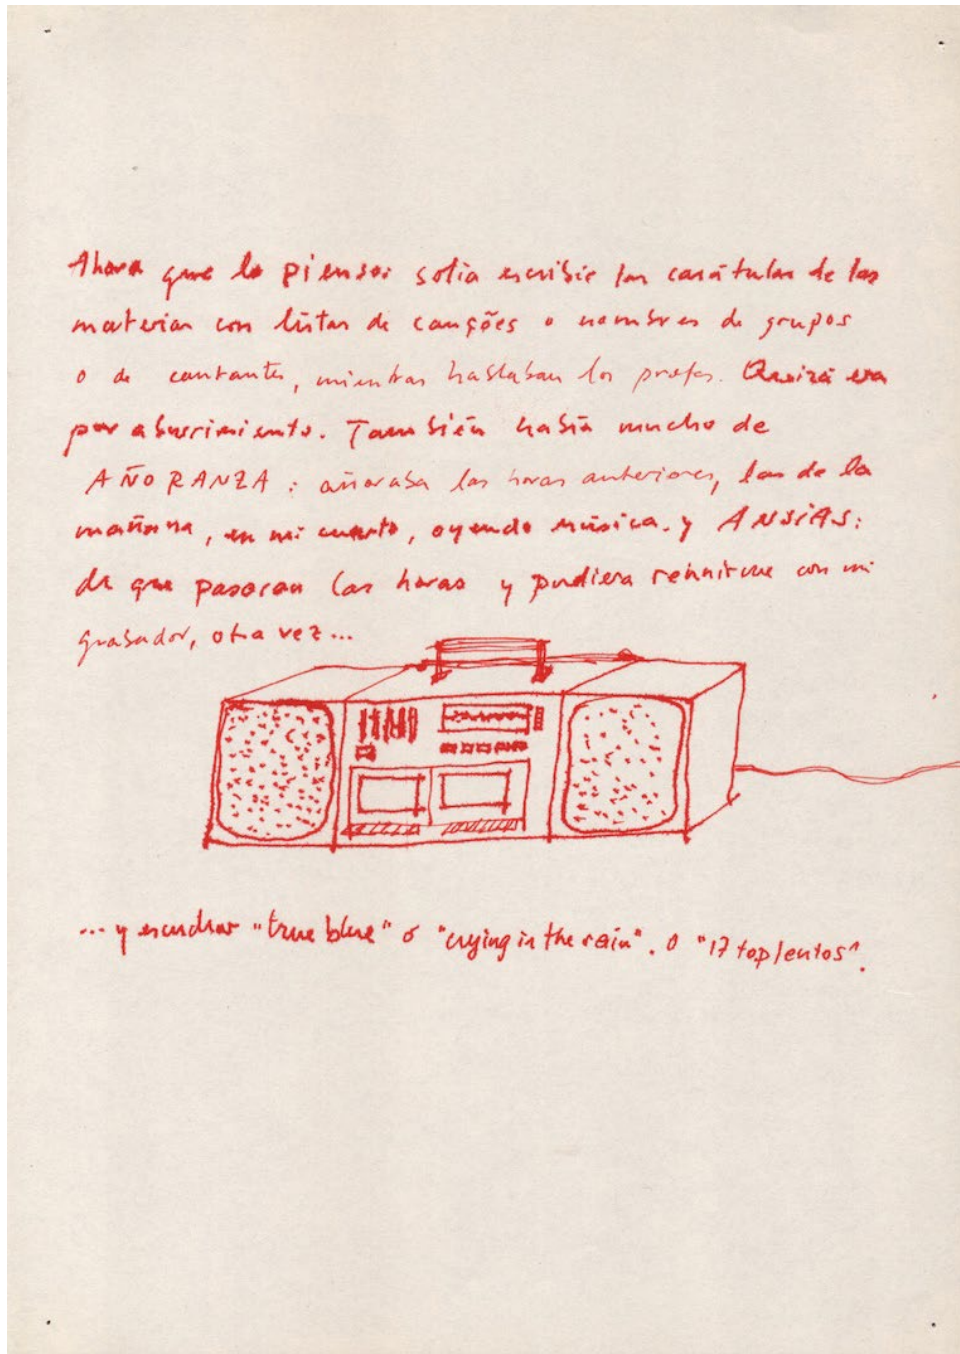 Ahora que lo pienso: solía escribir las carátulas de las
materias con listas de canções o nombres de grupos
o de cantantes, mientras hablaban los profes. Quizá era
por aburrimiento. También había mucho de
AÑORANZA: añoraba las horas anteriores, las de la
mañana, en mi cuarto, oyendo música. y ANSIAS:
de que pasaran las horas y pudiera reunirme con mi
grabador, otra vez...
... y escuchar "true blue" o "crying in the rain". o "17 top lentos".